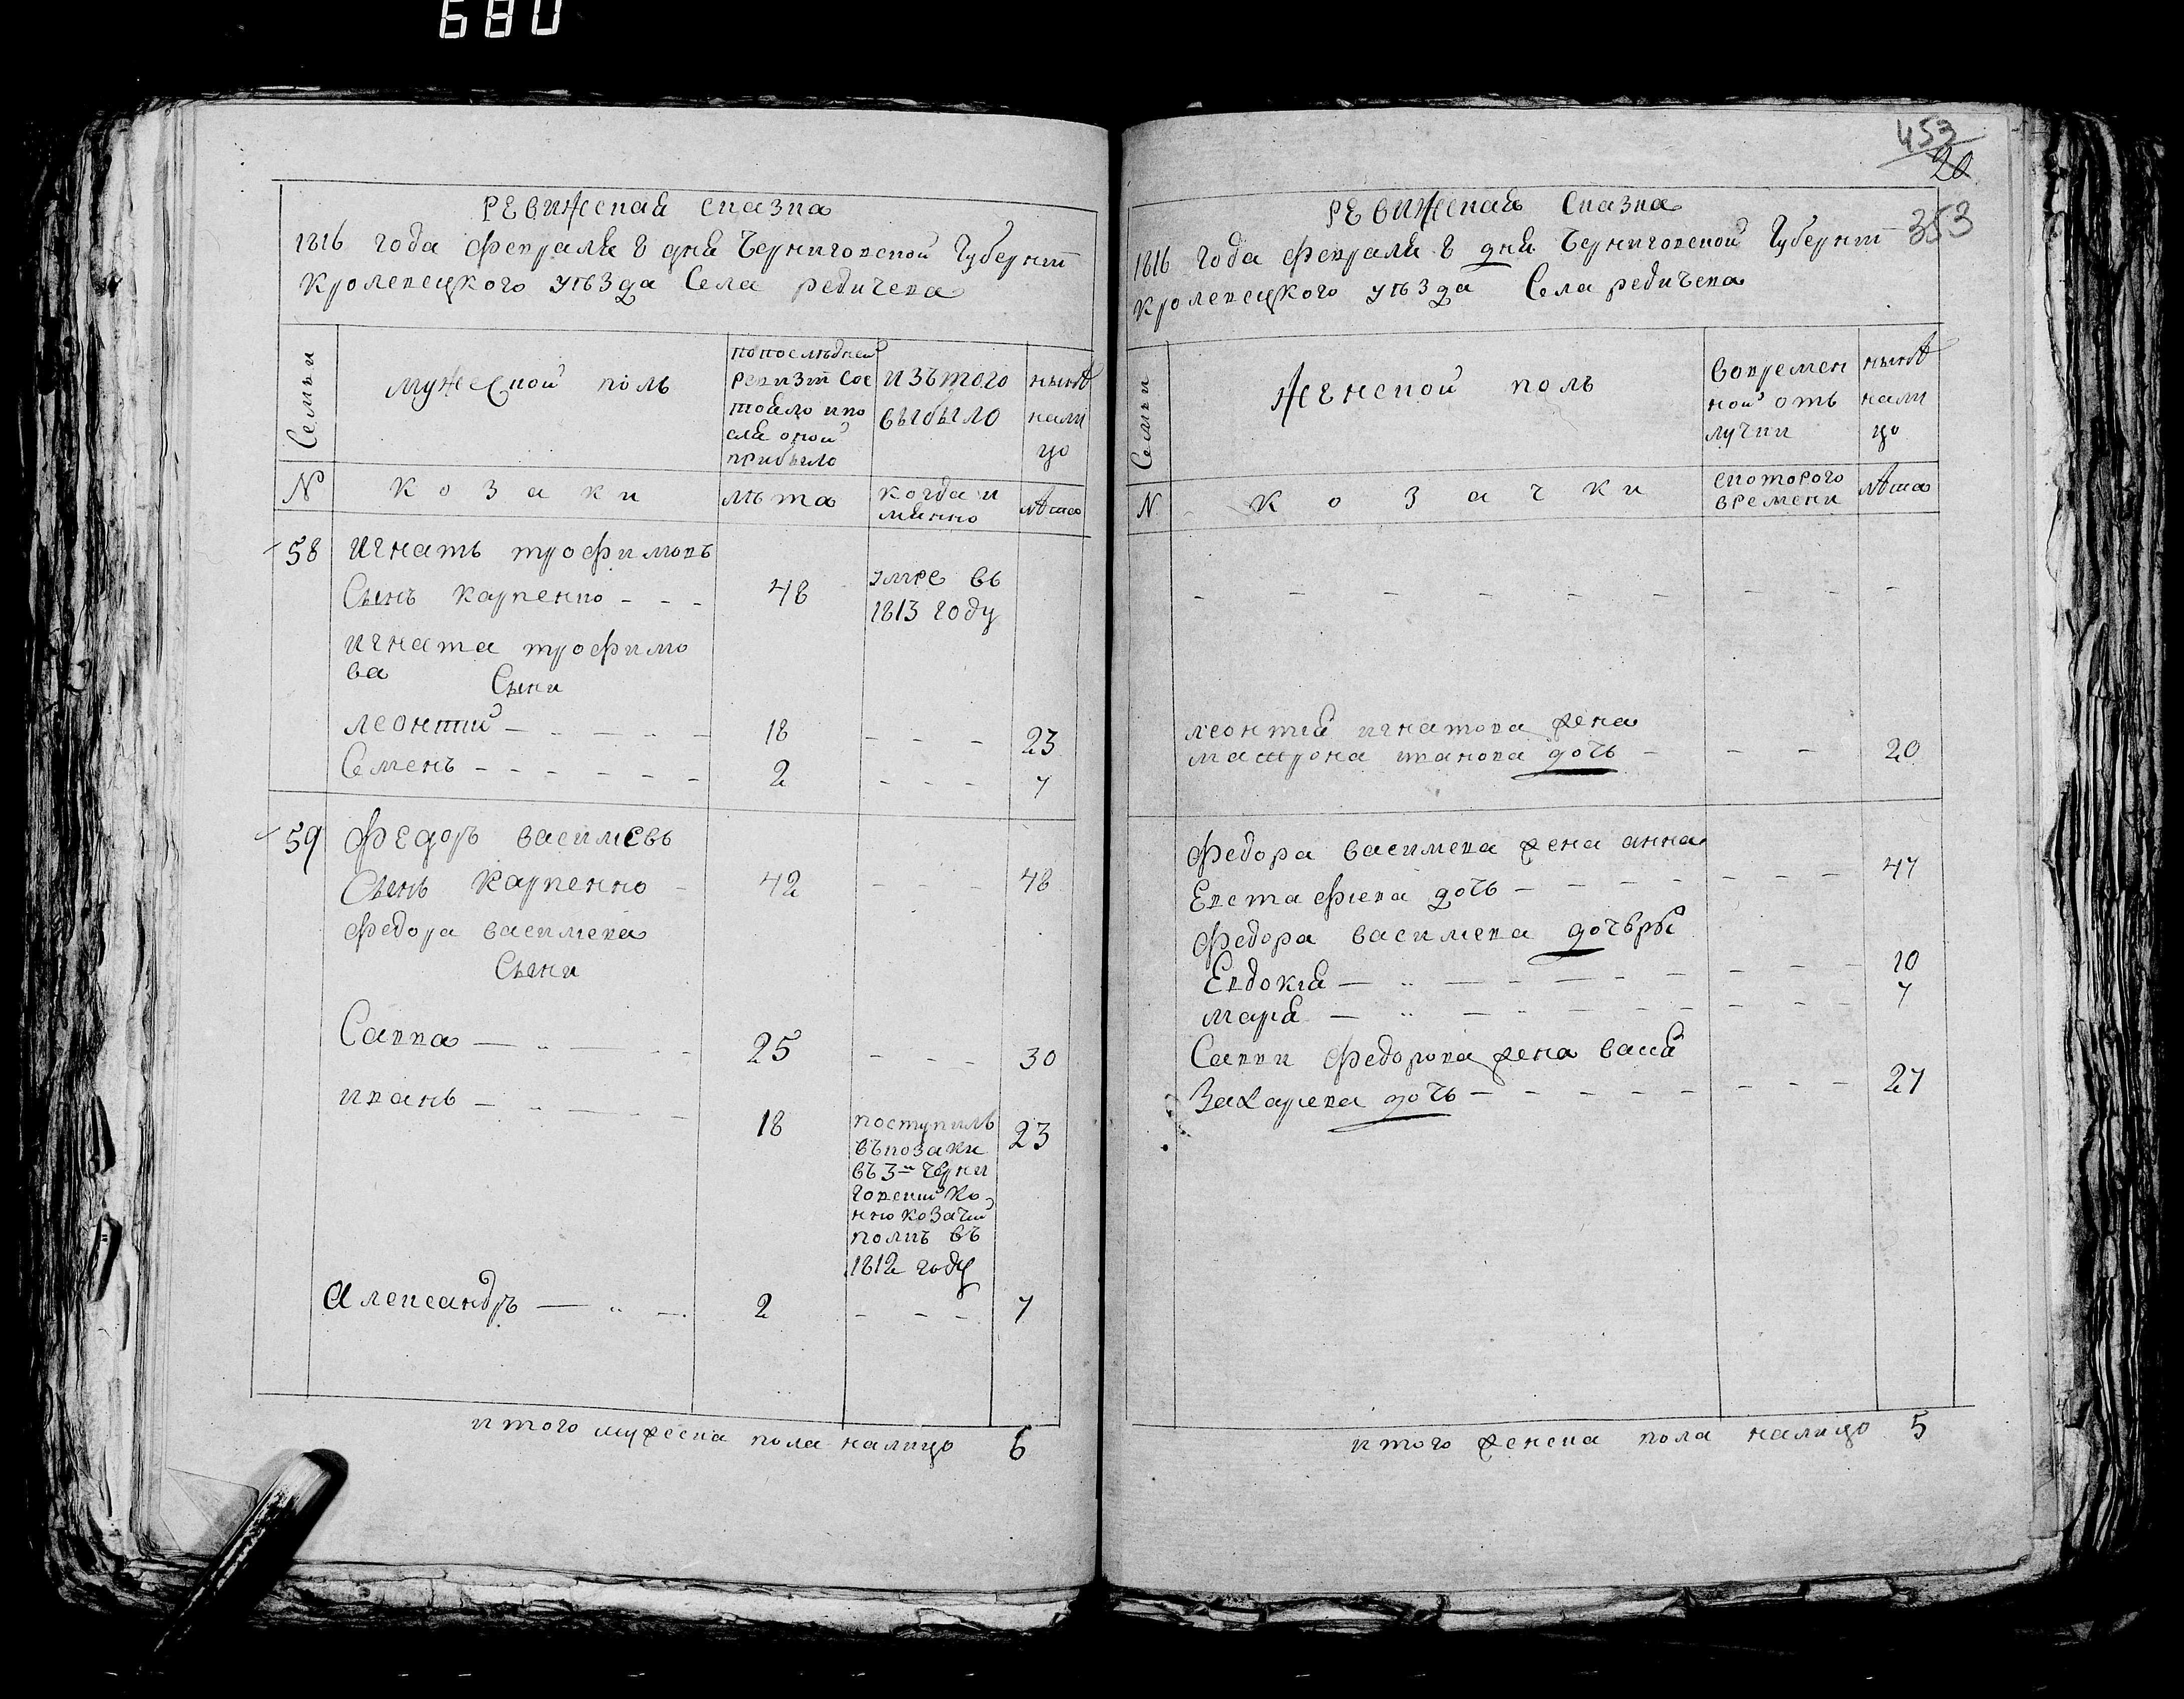 680
РЕвижская сказка
1816 года февраля 8 дня Черниговской Губернїи
Кролевецкого уѣзда Села редичева
Семьи
мужеской полъ
попослѣдней
ревизїи сос
тояло ипо
сля оной
прибыло
изътого
выбыло
нынѣ
нали
цо
N
козаки
лѣта
когда и
мянно
лѣта
58 Игнатъ трофимовъ
Сынъ Карпенко - - - 48 умре въ
1813 году
игната трофимо
ва Сыни
леонтий - - - 18 - - - 23
Семенъ - - - - - - 2 - - - 7
59 Федоръ василиевъ
Сынъ Карпенко - 42 - - - 48
Федора василиева
Сыни
Савва - - - 25 - - - 30
иванъ - - - 18 поступилъ 23
въкозаки
въ 3й Черни
говский Ко
нно козачий
полкъ въ
1812 году
Александръ - - 2 - - - 7
итого мужеска пола налицо 6
453
20
353
РЕвижская Сказка
1816 года Февраля 8 дня Черниговской Губернїи
Кролевецкого уѣзда Села редичева
Семьи
Женской полъ
вовремен
ной отъ
лучки
нынѣ
нали
цо
N
Козачки
скоторого
времени
лѣта
- - - - - - - - -
леонтия игнатова жена
матрона иванова дочь - - - 20
Федора василиева жена анна
Евстафиева дочь - - - - - - - 47
Федора василиева дочѣры
Евдокїя - - - - - - - 10
мария - - - - - - - 7
Савви Федорова жена васса
Захариева дочь - - - - - - - 27
итого женска пола налицо 5